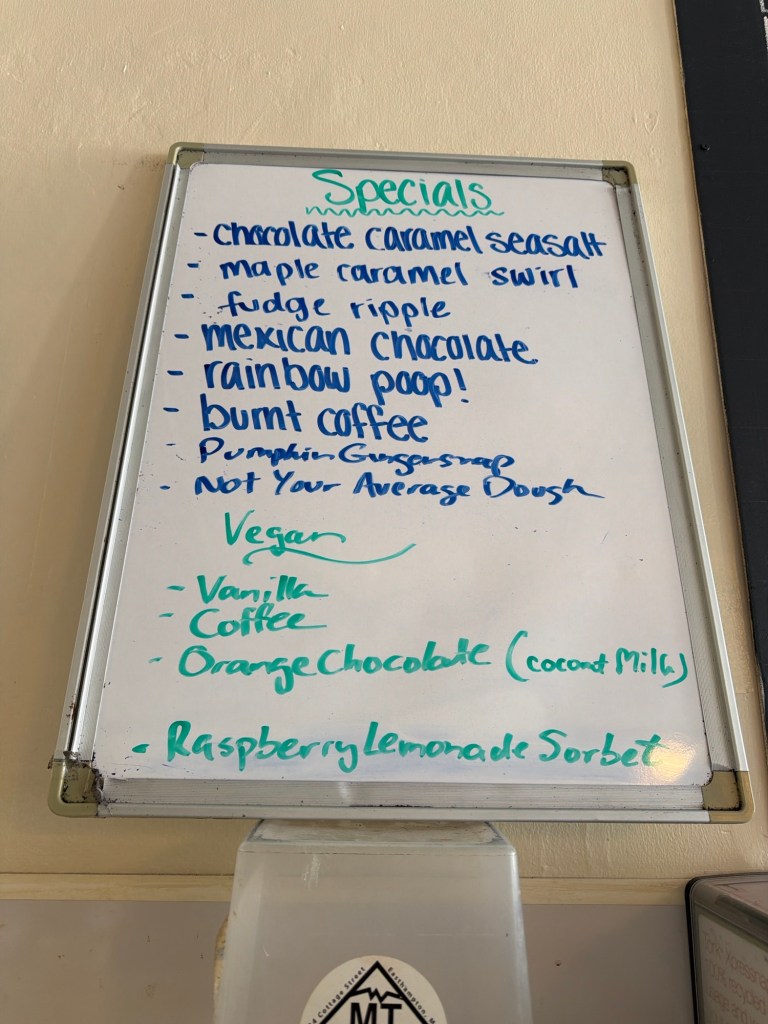 Specials
- chocolate caramel seasalt
- maple caramel swirl
- fudge ripple
- mexican chocolate
- rainbow poop!
- burnt coffee
- Pumpkin Gingersnap
- Not Your Average Dough
Vegan
- Vanilla
- Coffee
- Orange Chocolate (coconut Milk)
- Raspberry Lemonade Sorbet
Cottage Street Easthampton, M
MT